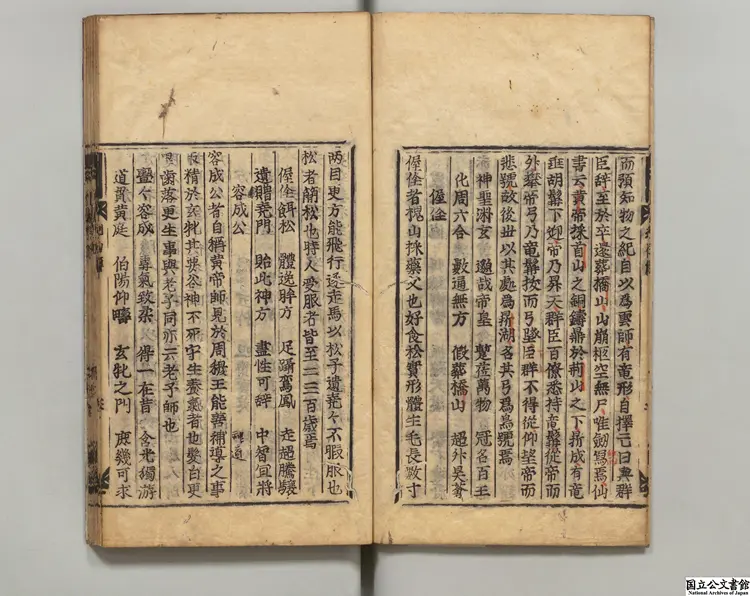 而預知物之紀自以爲雲師有竜形自擇亡日與群
臣辞至於卒還葬橋山山崩柩空無尸唯劔舄焉仙
書云黄帝採首山之銅鑄鼎於荊山之下鼎成有竜
垂胡髯下迎帝乃昇天群臣百僚悉持竜髯從帝而
升攀帝弓乃竜髯抜而弓墜群臣不得從仰望帝而
悲號故後世以其处爲鼎湖名其弓爲烏號焉
神聖淵玄 邈哉帝皇 蹔莅萬物 冠名百王
化周六合 數通無方 假葬橋山 超升昊蒼
偓佺
偓佺者槐山採藥父也好食松實形體生毛長數寸
兩目更方能飛行逐走馬以松子遺堯々不暇服也
松者簡松也時人受服者皆至二三百歲焉
偓佺餌松 體逸眸方 足躡鸞鳳 走超騰驤
遺贈堯門 貽此神方 盡性可辞 中智宜將
容成公
容成公者自稱黄帝師見於周穆王能善補導之事
取精於玄牝其要谷神不死守生養氣者也髮白更
黒歯落更生事與老子同亦云老子師也
亹々容成 專氣致柔 得一在昔 含光獨游
道貫黄庭 伯陽仰疇 玄牝之門 庶幾可求
国立公文書館
National Archives of Japan